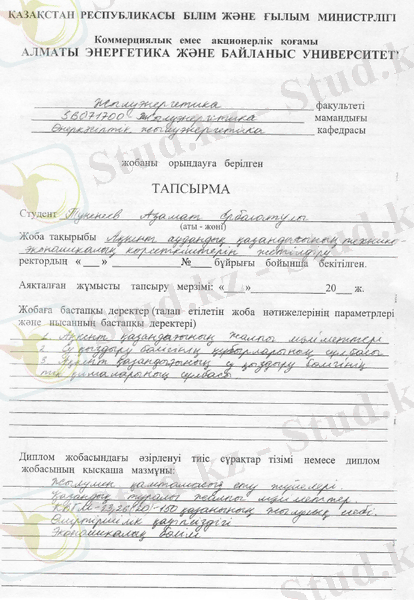 ҚАЗАҚСТАН РЕСПУБЛИКАСЫ БІЛІМ ЖӘНЕ ҒЫЛЫМ МИНИСТРЛІГІ
Коммерциялық емес акционерлік қоғамы
АЛМАТЫ ЭНЕРГЕТИКА ЖӘНЕ БАЙЛАНЫС УНИВЕРСИТЕТІ
Жылуэнергетика факультеті
5В071700 Жылуэнергетика мамандығы
Өнеркәсіптік жылуэнергетика кафедрасы
жобаны орындауға берілген
ТАПСЫРМА
Студент Азамат
(аты - жөні)
Жоба тақырыбы аудандық қазандығының технико-
экономикалық көрсеткіштерін жетілдіру
ректордың « » № бұйрығы бойынша бекітілген.
Аяқталған жұмысты тапсыру мерзімі: « » 20 ж.
Жобаға бастапқы деректер (талап етілетін жоба нәтижелерінің параметрлері
және нысанның бастапқы деректері)
1. қазандығының жалпы мәліметтері
2. Су қыздыру бөлімінің құбырларының сұлбасы
3. қазандығының су қыздыру бөлімінің
сұлбасы
Диплом жобасындағы әзірленуі тиіс сұрақтар тізімі немесе диплом
жобасының қысқаша мазмұны:
Жылумен қамтамасыз ету жүйелері.
Қазандық туралы жалпы мәліметтер.
-150 қазанының жылулық есебі.
Өміртіршілік қауіпсіздігі
Экономикалық бөлім
Stud.kz - Stud.kz